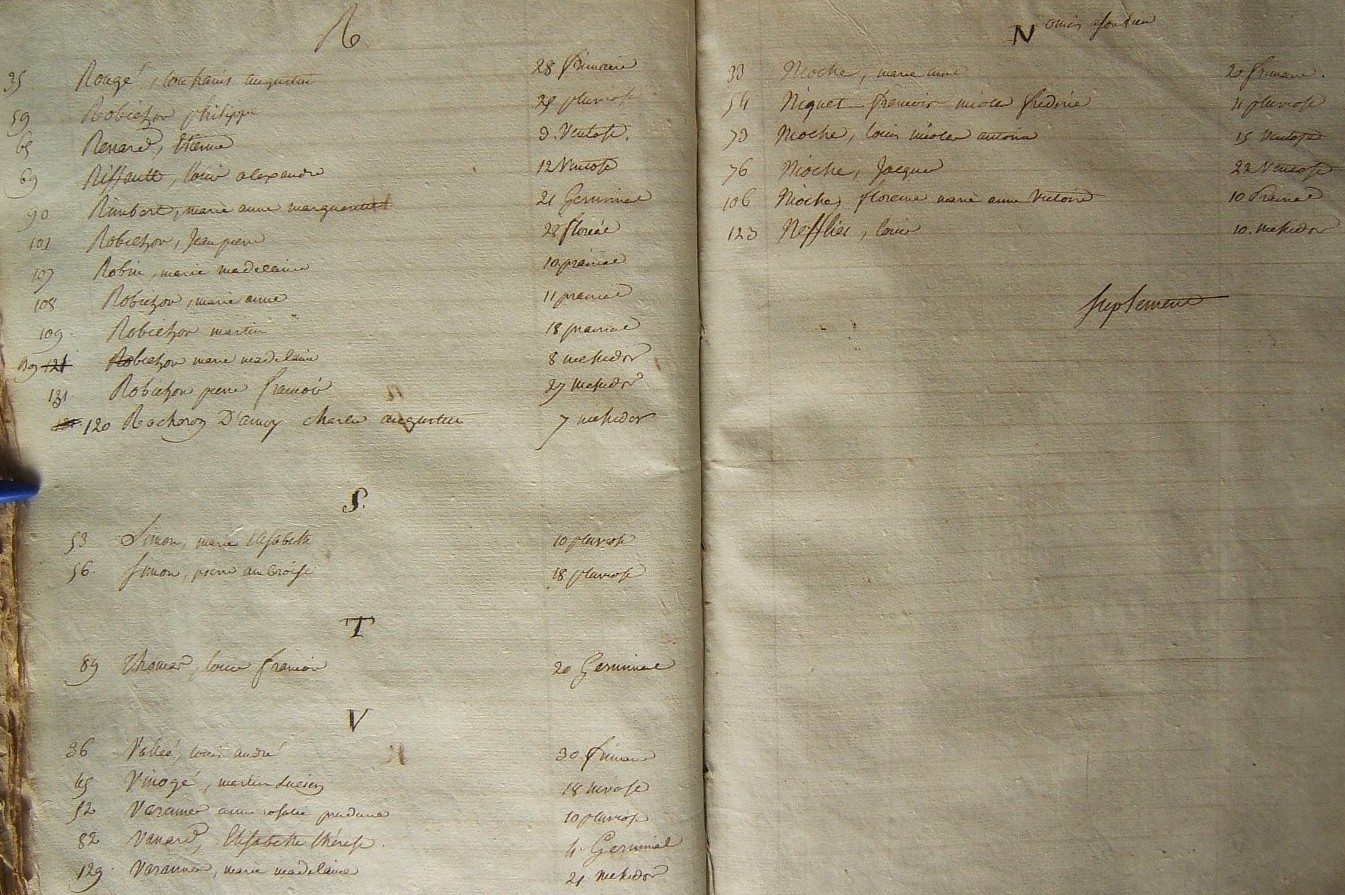 R
35 Rougé, augustin 28 frimaire
59 Robichon philippe 29 pluviose
65 Renard, Etienne 3 Ventose.
69 Riffault, louis alexandre 12 Ventose
90 Rimbert, marie anne marguerite 21 Germinal
101 Robichon, Jean pierre 28 floréal
107 Robin, marie madelaine 10 prairial
108 Robichon, marie anne 11 prairial
109 Robichon martin 18 prairial
121 Robichon marie madelaine 8 messidor
131 Robichon pierre françois 27 messidor
120 charles augustin 7 messidor
S.
53 Simon, marie Elisabeth 10 pluviose
56. Simon, pierre ambroise 18 pluviose
T
89 Thomas, louis françois 20 Germinal
V
36 Vallée, louis andré 30 frimaire
45 Vinogé, martin 18 nivose
52 Varanne anne rosalie prudence 10 pluviose
82 Vanard, Elisabeth thérese. 4. Germinal
129. Varanne, marie madelaine 21 messidor
N omis
33 Nioche, marie anne 20 frimaire.
54 Niquet françois nicolas 11 pluviose
73 Nioche, louis nicolas antoine 15 Ventose
76 Nioche, Jacques 22 Ventose
106 Nioche, florence marie anne Victoire 10 Prairial
123 Nefflier, louis 10. messidor
Suplement